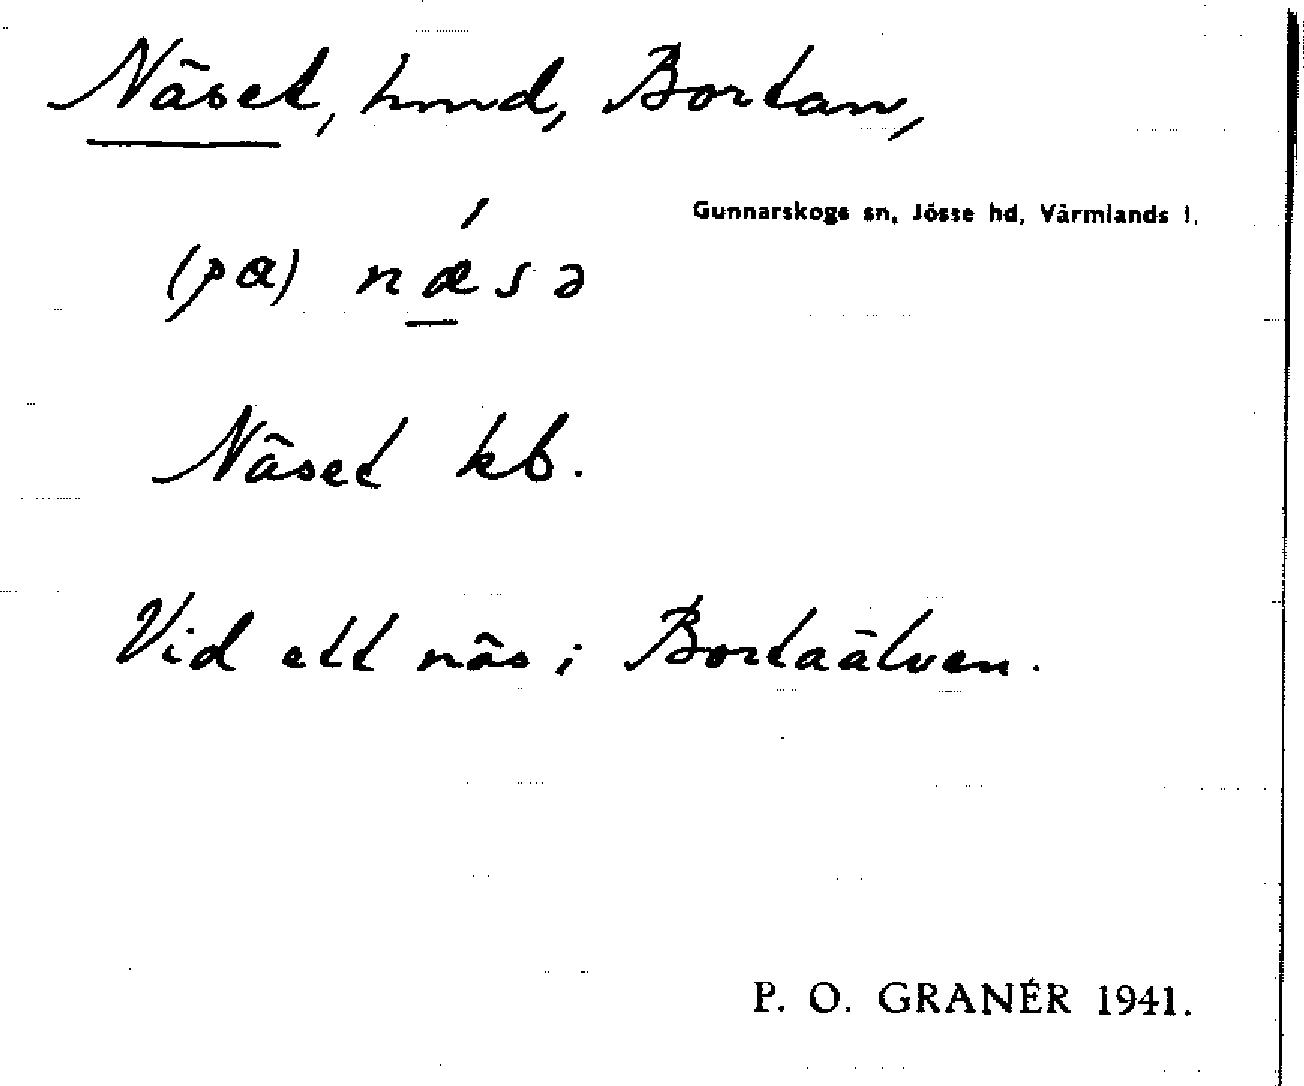 Näset, hmd, Bortan,
Gunnarskogs sn, Jösse hd, Värmlands l.
(pɑ) nǽ̲sə
Näset kb.
Vid ett näs i Bortaälven.
P. O. GRANÉR 1941.